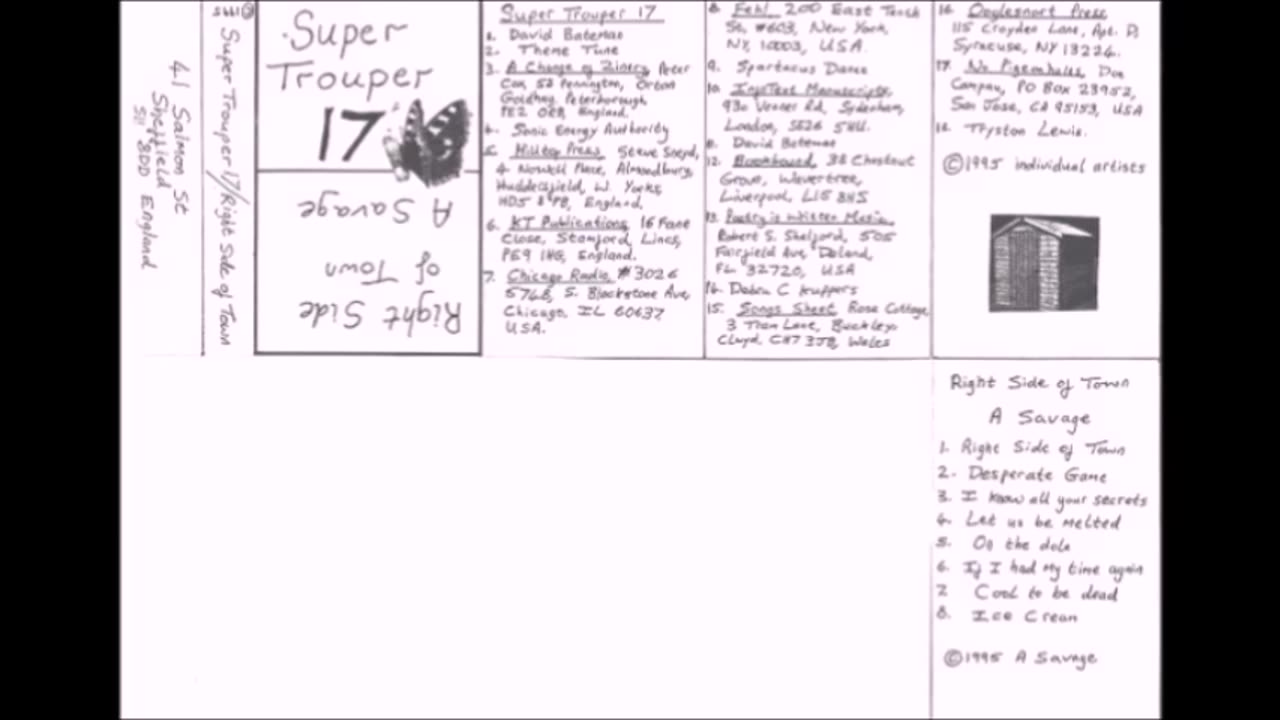 ©1995
Super Trouper 17/Right Side of Town
41 Salmon St
Sheffield
S11 8DD England
Super
Trouper
17
Right Side
of Town
A Savage
Super Trouper 17
1. David Bateman
2. Theme Tune
3. A Change of Zinery Peter
Cox, 58 Pennington, Orton
Goldhay, Peterborough
PE2 0RB, England.
4. Sonic Energy Authority
5. Hilltop Press, Steve Sneyd,
4 Nowell Place, Almondbury,
Huddersfield, W. Yorks,
HD5 8PB, England.
6. KT Publications, 16 Fane
Close, Stamford, Lincs,
PE9 1HG, England.
7. Chicago Radio, #3026
5768, S. Blackstone Ave,
Chicago, IL 60637
USA.
8. Feh! 200 East Tenth
St, #603, New York,
NY, 10003, USA.
9. Spartacus Dance
10. Manuscripts,
93c Venner Rd, Sydenham,
London, SE26 5HU.
11. David Bateman
12. Bookbound, 38 Chestnut
Grove, Wavertree,
Liverpool, L15 8HS
13. Poetry is Written Music,
Robert S. Shelford, 505
Fairfield Ave, Deland,
FL 32720, USA
14. Debra C Kuppers
15. Songs Sheet Rose Cottage,
3 Tram Lane, Buckley,
Clwyd, CH7 3JB, Wales
16. Doylesnort Press
115 Croyden Lane, Apt. D,
Syracuse, NY 13224.
17. No Pigeonholes, Don
Campau, PO Box 23952,
San Jose, CA 95153, USA
18. Trystan Lewis.
©1995 individual artists
Right Side of Town
A Savage
1. Right Side of Town
2. Desperate Game
3. I know all your secrets
4. Let us be melted
5. On the dole
6. If I had my time again
7 Cool to be dead
8. Ice Cream
©1995 A Savage